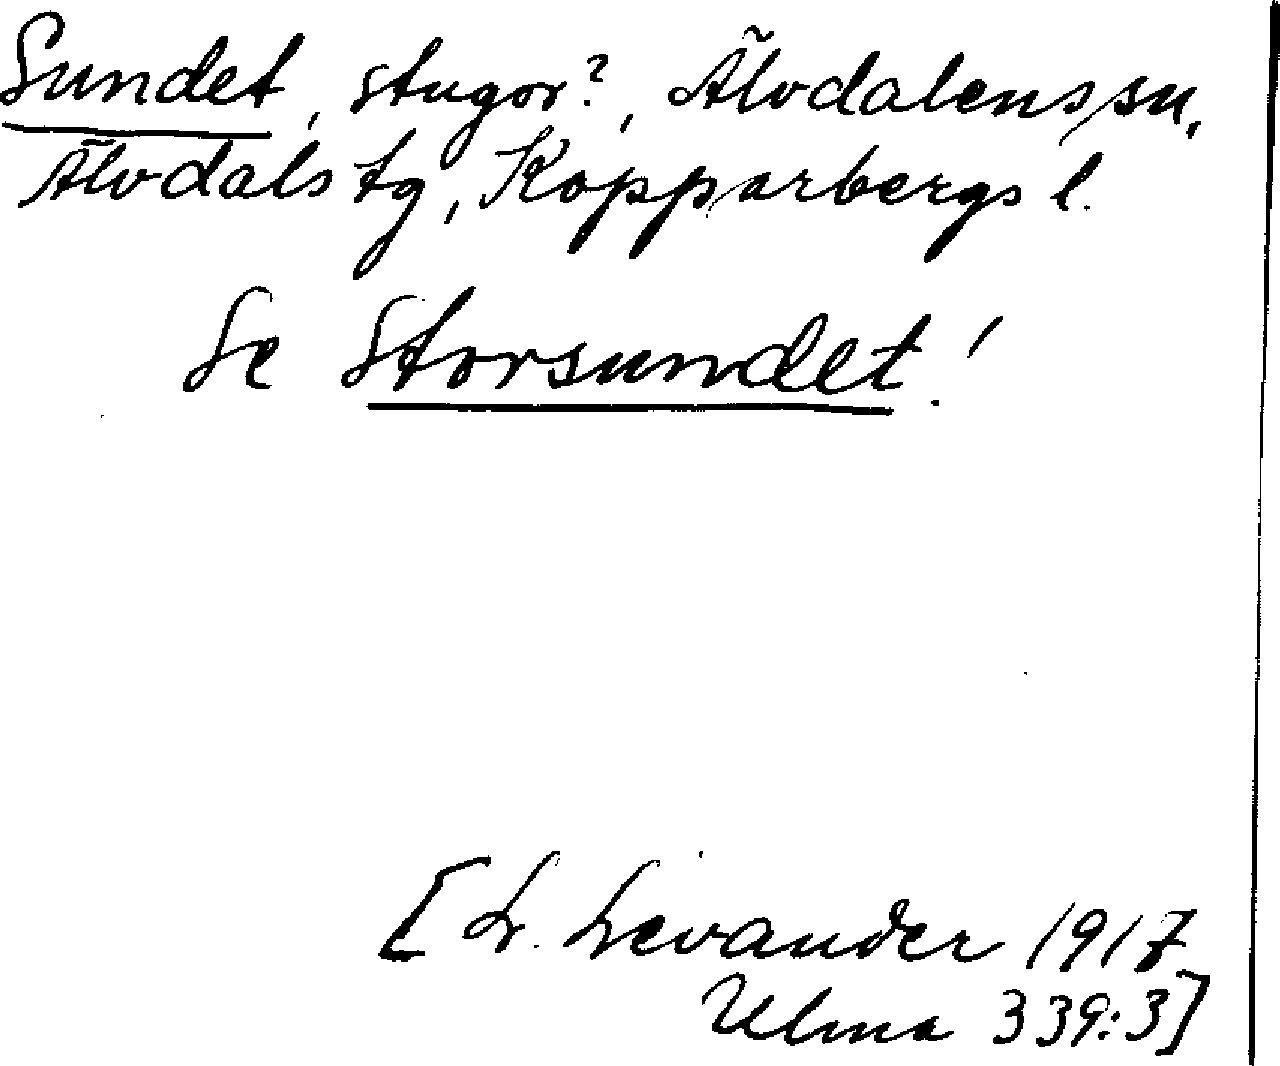 Sundet, stugor?, Älvdalens sn,
Älvdals tg, Kopparbergs l.
Se Storsundet!
[L. Levander 1917
Ulma 339:3]